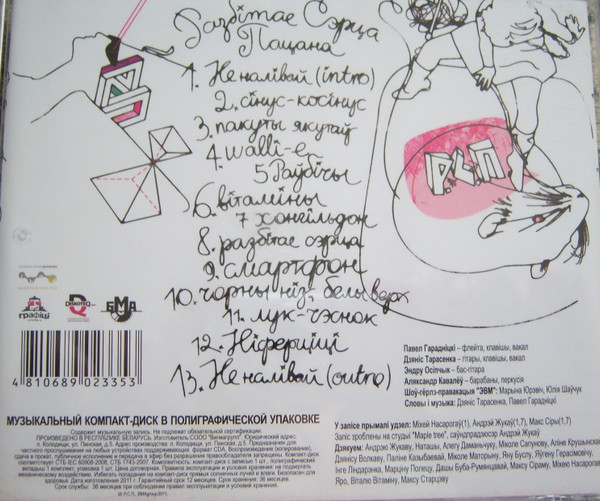 Разбітае Сэрца
Пацана
1. Не налівай (intro)
2. сінус-косінус
3. пакуты якутаў
4. walli-e
5 Раўбічы
6. вітаміны
7 хонгільдон
8. разбітае сэрца
9. смартфон
10. чорны ніз белы верх
11. лук-чэснок
12. Ніферціці
13. Не налівай (outro)
Р.С.П.
графіці
DISKOTEQ
БМА
4 810689 023353
Павел Гарадніцкі – флейта, клавішы, вакал
Дзяніс Тарасенка – гітары, клавішы, вакал
Эндру Осіпчык – бас-гітара
Аляксандр Кавалёў – барабаны, перкусія
Шоў-гёрлз-правакацыя "ЭВМ": Марына Юрэвіч, Юлія Шаўчук
Словы і музыка: Дзяніс Тарасенка, Павел Гарадніцкі
МУЗЫКАЛЬНЫЙ КОМПАКТ-ДИСК В ПОЛИГРАФИЧЕСКОЙ УПАКОВКЕ
Содержит музыкальную запись. Не подлежит обязательной сертификации.
ПРОИЗВЕДЕНО В РЕСПУБЛИКЕ БЕЛАРУСЬ.
Дата изготовления 2011 г. Гарантийный срок 12 месяцев. Срок хранения: 36 месяцев.
Срок службы: 36 месяцев при соблюдении правил эксплуатации и условия хранения.
У запісе прымалі удзел: Міхей Насарогаў(1), Андрэй Жукаў(1,7), Макс Сіры(1,7).
Запіс зроблены на студыі "Maple tree", саўндпрадзюсар Андрэй Жукаў
Дзякуем: Андрэю Жукаву, Наташы, Алегу Даманчуку, Міколе Сапунову, Аліне Крушынскай
Дзянісу Волкаву, Паліне Казыбаевай, Міколе Маторыну, Яну Буслу, Яўгену Герасімовічу,
Інге Ліндаронка, Марціну Полецу, Дашы Буба-Румянцавай, Максу Сіраму, Міхею Насарогаву
Яро, Віталю Вітаміну, Максу Старцэву